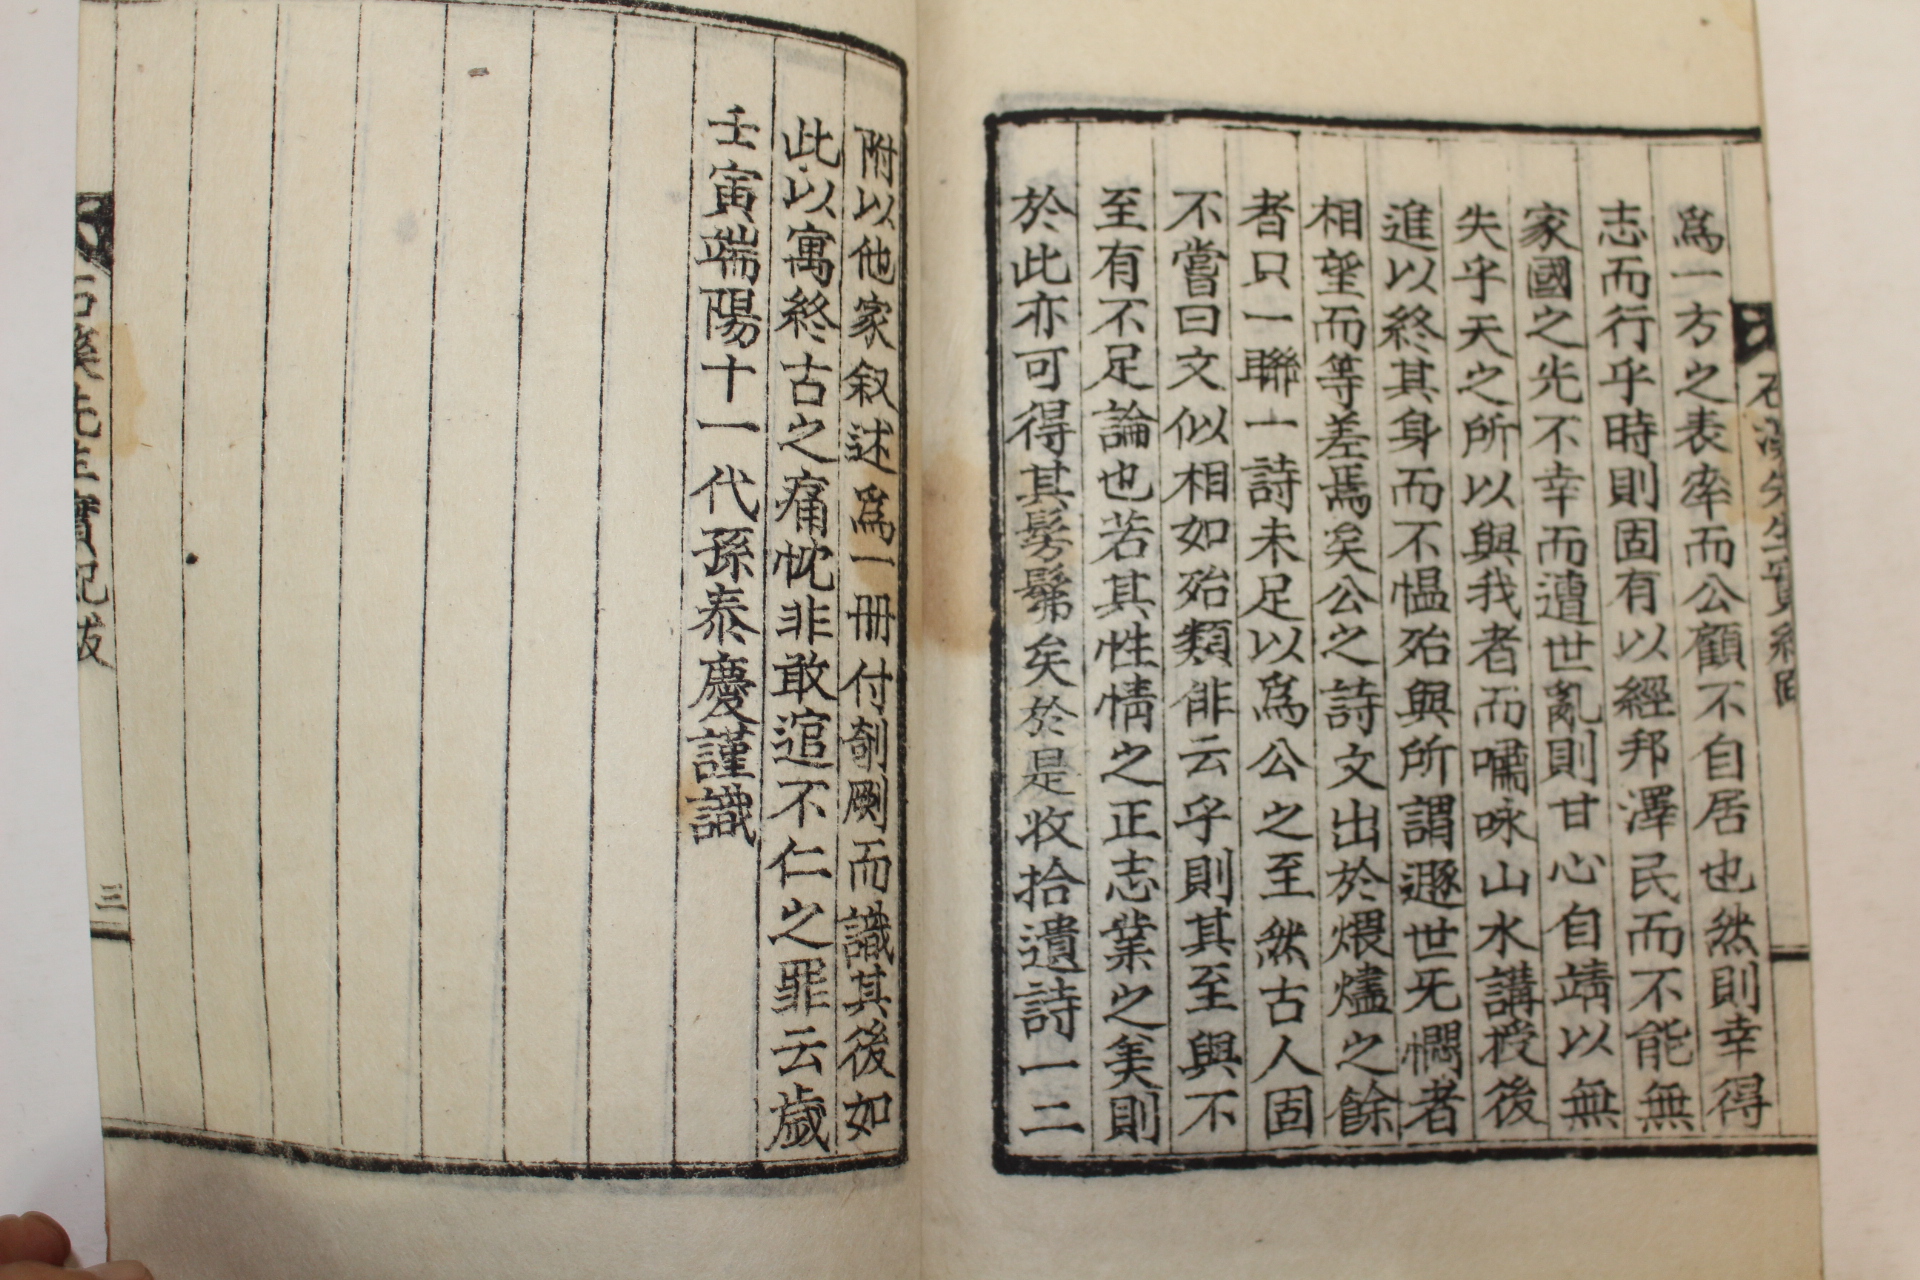 爲一方之表率而公顧不自居也然則幸得
志而行乎時則固有以經邦澤民而不能無
家國之光不幸而遭世亂則甘心自靖以無
失乎天之所以與我者而嘯咏山水講授後
進以終其身而不慍殆與所謂遯世旡憫者
相望而等差焉矣公之詩文出於煨燼之餘
者只一聯一詩未足以爲公之至然古人固
不嘗曰文似相如殆類俳云乎則其至與不
至有不足論也若其性情之正志業之美則
於此亦可得其髣髴矣於是收拾遺詩一二
附以他家叙述爲一冊付剞劂而識其後如
此以寓終古之痛忱非敢逭不仁之罪云歲
壬寅端陽十一代孫泰慶謹識
先生實記跋
三